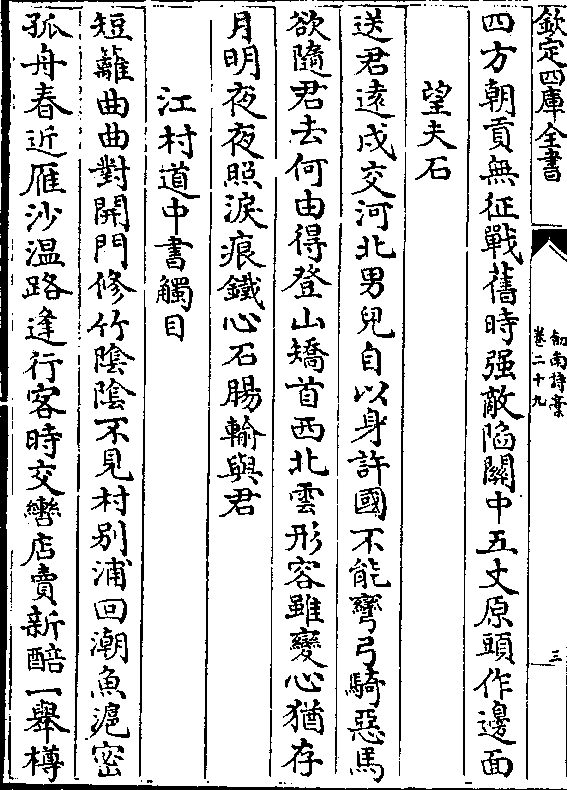 欽定四庫全書
劍南詩藁
卷二十九
三
四方朝貢無征戰舊時强敵陷關中五丈原頭作邊面
望夫石
送君逺戍交河北男兒自以身許國不能彎弓騎惡馬
欲隨君去何由得登山矯首西北雲形容雖變心猶存
月明夜夜照淚痕鐵心石腸輸與君
江村道中書觸目
短籬曲曲對開門修竹陰陰不見村别浦回潮魚滬密
孤舟春近雁沙温路逢行客時交轡店賣新醅一舉樽